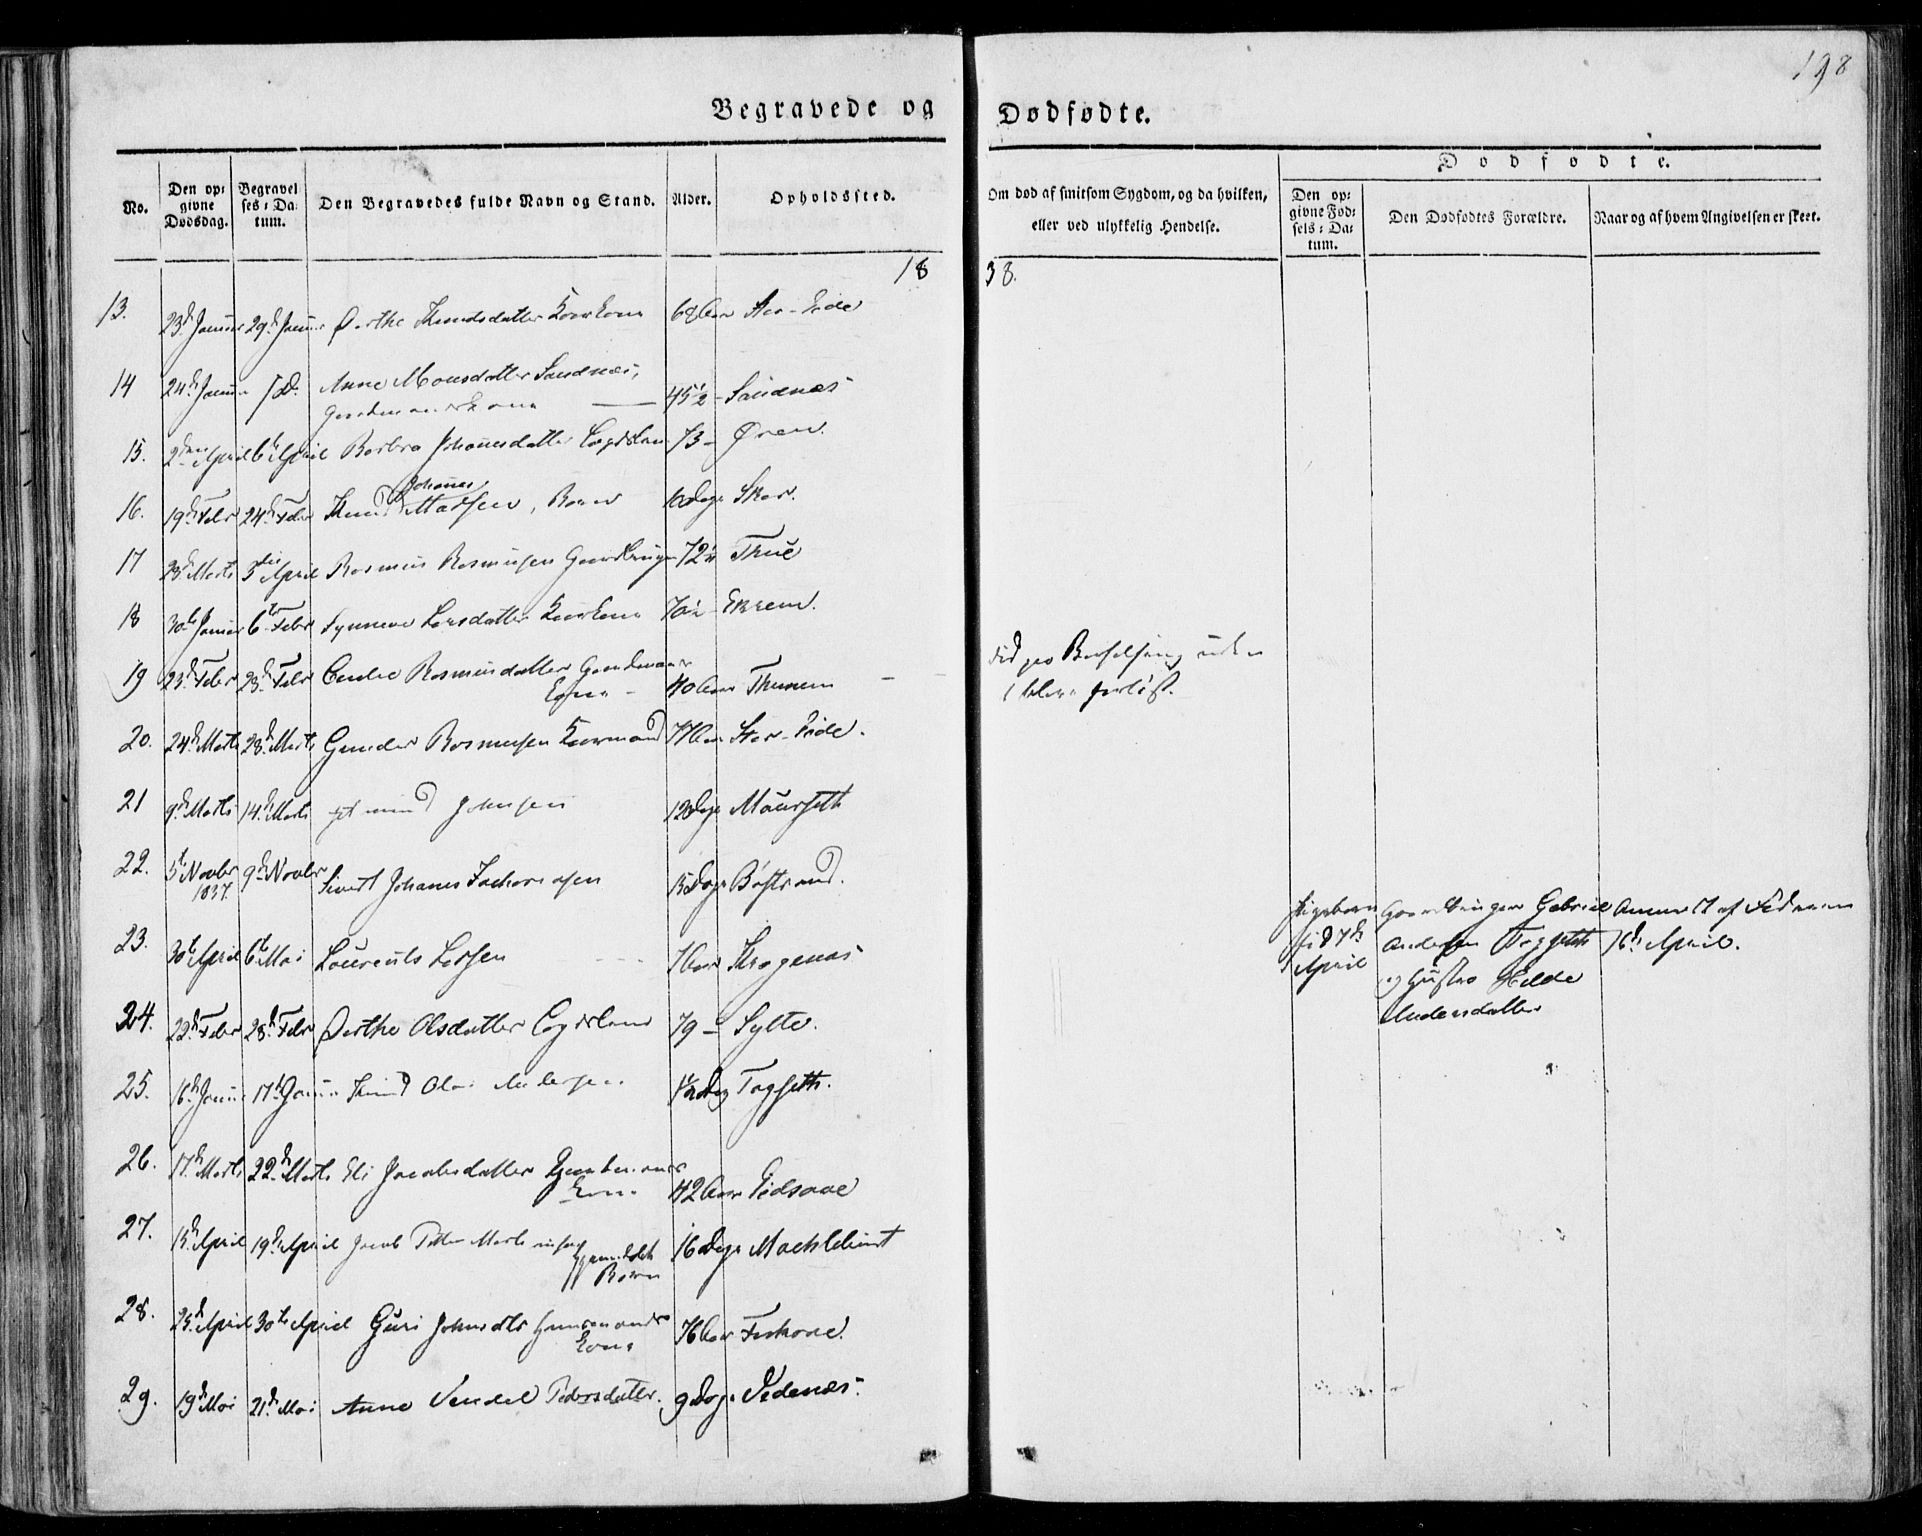 198
Begravede og Dødfødte.
No.
Den opgivne Dødsdag.
Begravelses-Datum.
Den Begravedes fulde Navn og Stand.
Alder.
Opholdssted.
Om død af smitsom Sygdom, og da hvilken, eller ved ulykkelig Hendelse.
Dødfødte.
Den opgivne Fødsels-Datum.
Den Dødfødtes Forældre.
Naar og af hvem Angivelsen er skeet.
1838.
13. 23d Januar 29d Januar Berthe Knudsdatter Kaarkone 68 Aar Stor-Eide
14 24d Januar J.D. Anne Monsdatter Sandnæs,
Gaardmandskone 45 1/2 - Sandnæs
15. 2den April 6t April Barbro Johannesdatter 73 - Øren.
16. 19d Febr 24d Febr Knud Johannes Madsen, Barn 10 Dage Skar.
17 28d Marts 3die April Rasmus Rasmusen Gaardbruger 72 1/2 Thue
18 30te Januar 6te Febr Synneve Larsdatter Kaarkone 70 1/2 - Ekrem.
19 23d Febr 28d Febr Rasmusdatter Gaardmands
Kone - 40 Aar Thunem
ved Barselseng uden
at blive forløst.
20. 24d Marts 28d Marts Gunder Rasmusen Kaarmand 77 Aar Stor-Eide.
21 9d Marts 14d Marts Johnsen 12 Dage Maurseth
22. 5t Novbr 1837. 9d Novbr Sivert Johannes Zachariasen 15 Dage Bøstrand.
23. 30te April 6te Mai Laurents Larsen 7 Aar Krogenæs
Gaardbruger Gabriel
Andersen Tagseth
og Hustru Hilde
Andersdatter
7de April
Anmeldt af Faderen
16d April.
24. 22d Febr 28d Febr Berthe Olsdatter Lægdslem 79 - Sylte.
25. 16d Januar 17d Januar Knud Olai Andersen 1/2 Dag Tagseth.
26. 17d Marts 22d Marts Eli Jacobsdatter Gaardmands
Kone 42 Aar Eidsaae
27. 15d April 19d April Jacob Petter
Barn 16 Dage
28. 25d April 30te April Guri Johnsdtr Huusmands
Kone 76 Aar
29. 19d Mai 21d Mai Anne Vendel Pedersdatter. 9 Dage Vedenæs.